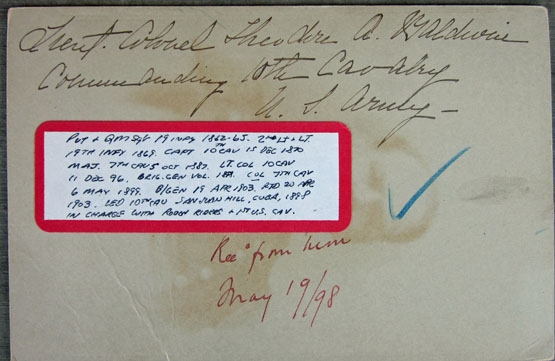 Lieut. Colonel Theodore A. Baldwin
Commanding 10th Cavalry
U. S. Army -
PVT + QM Sgt 19 INFY 1862-65. 2nd LT + LT.
19TH INFY 1869. CAPT 10TH CAV 15 DEC 1870
MAJ. 7TH CAV 5 OCT 1887. LT. COL 10 CAV
11 DEC 96. BRIG. GEN VOL. COL 7TH CAV
6 MAY 1899. B/GEN 19 APR 1903. RTD 20 APR
1903. LED 10TH CAV SAN JUAN HILL, CUBA, 1898
IN CHARGE WITH ROUGH RIDERS + 1ST U.S. CAV.
Recd from him
May 19/98